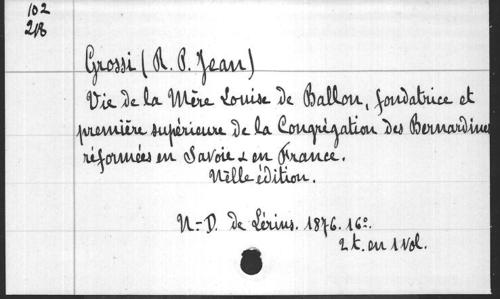 102
218
Grossi (R. P. Jean)
Vie de la Mère Louise de Ballon, fondatrice et
première supérieure de la Congrégation des Bernardines
réformées en Savoie & en France.
Nelle édition.
N.-D. de Lérins. 1876. 16º.
2 t. en 1 vol.